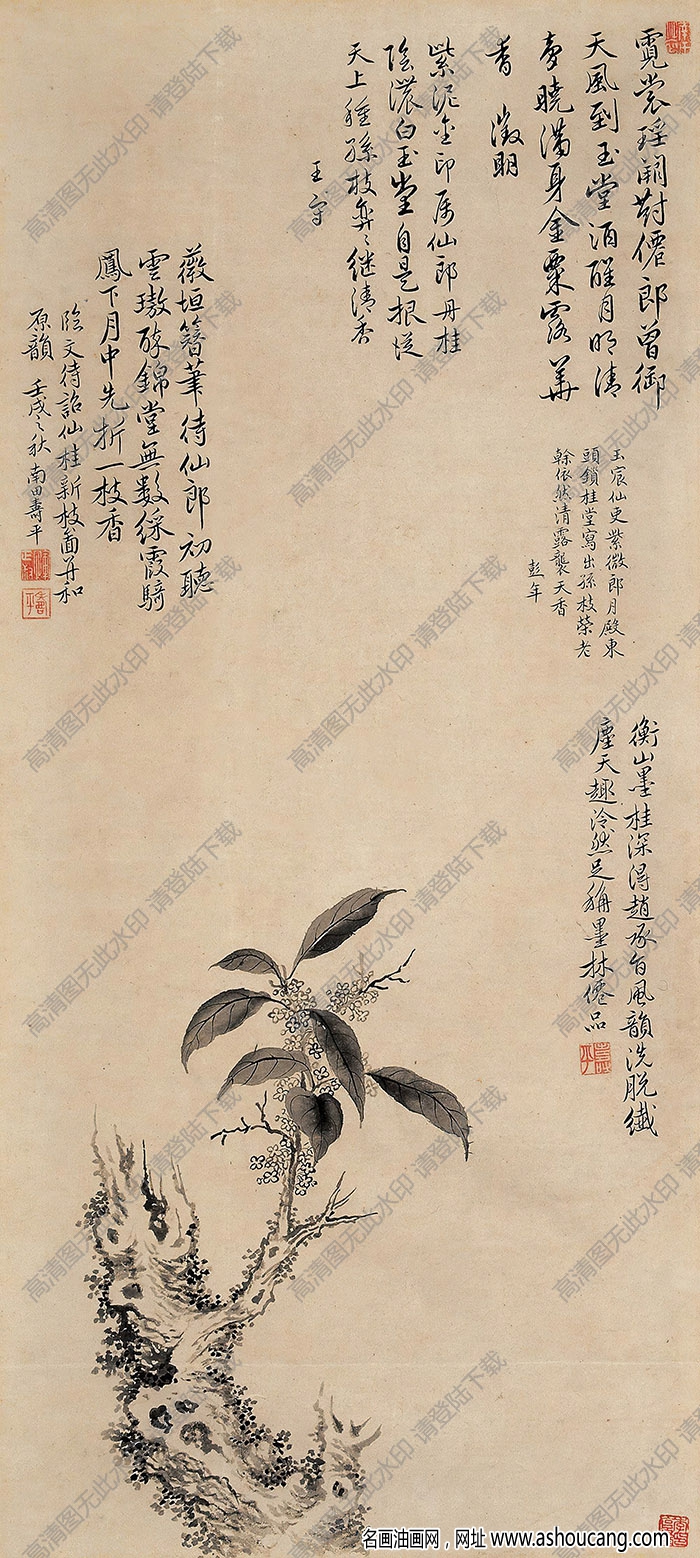 霓裳瑶阙對僊郎曾御
天風到玉堂酒醒月明清
夢曉满身金粟露華
香 徵明
紫泥金印属仙郎丹桂
陰濃白玉堂自是根從
天上種孫枝奕〻继清香
王守
玉宸仙吏紫微郎月殿東
頭鎖桂堂寫出孫枝榮老
榦依然清露襲天香
彭年
薇垣簪筆待仙郎初聽
雲璈醉錦堂無数綵霞騎
鳳下月中先折一枝香
臨文待詔仙桂新枝啚并和
原韻 壬戌之秋 南田壽平
衡山墨桂深得趙承旨風韻洗脱纎
塵天趣泠然足稱墨林僊品
高清图无此水印 请登陆下载
名画油画网，网址 www.ashoucang.com